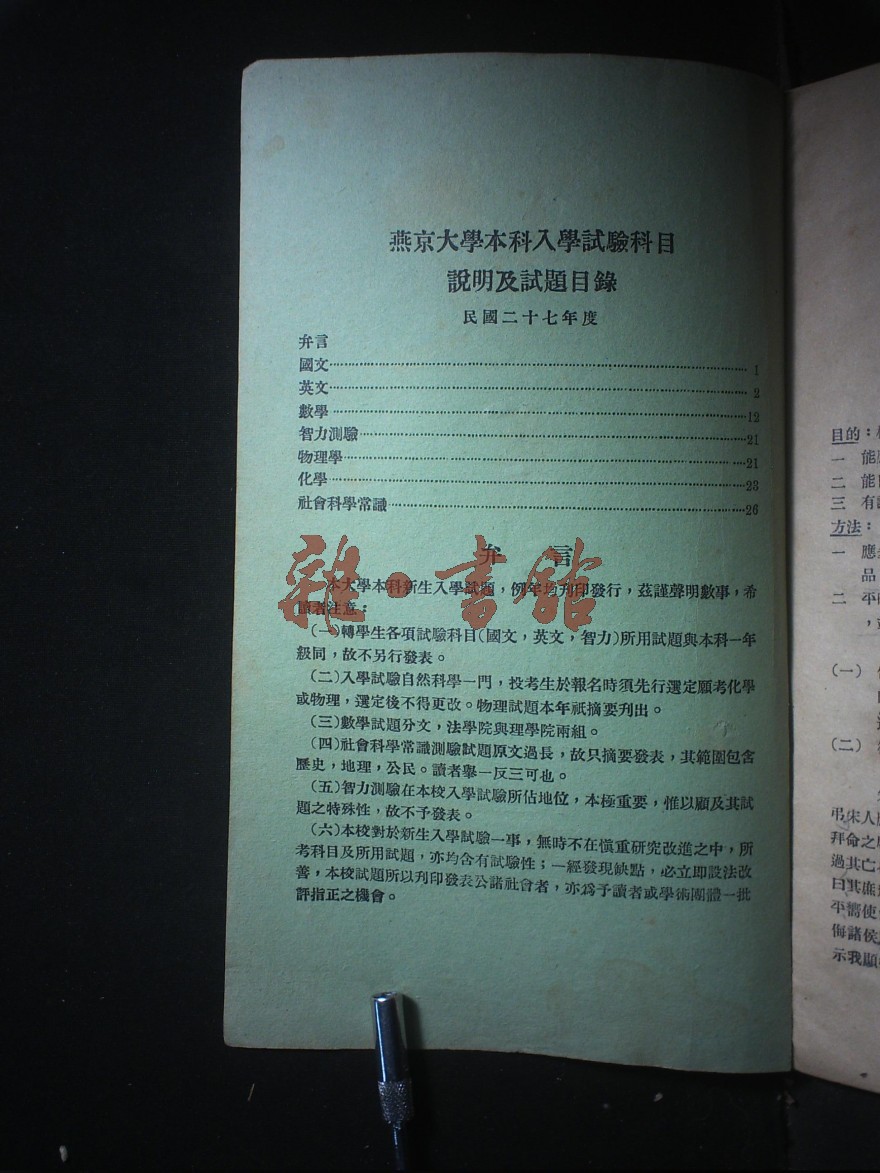 燕京大學本科入學試驗科目
說明及試題目錄
民國二十七年度
弁言
國文 1
英文 2
數學 12
智力測驗 21
物理學 21
化學 23
社會科學常識 26
弁言
本大學本科新生入學試題，例年均刊印發行，茲謹聲明數事，希
讀者注意：
（一）轉學生各項試驗科目（國文，英文，智力）所用試題與本科一年
級同，故不另行發表。
（二）入學試驗自然科學一門，投考生於報名時須先行選定願考化學
或物理，選定後不得更改。物理試題本年祇摘要刋出。
（三）數學試題分文，法學院與理學院兩組。
（四）社會科學常識測驗試題原文過長，故只摘要發表，其範圍包含
歷史，地理，公民。讀者舉一反三可也。
（五）智力測驗在本校入學試驗所佔地位，本極重要，惟以顧及其試
題之特殊性，故不予發表。
（六）本校對於新生入學試驗一事，無時不在慎重研究改進之中，所
考科目及所用試題，亦均含有試驗性；一經發現缺點，必立即設法改
善，本校試題所以刋印發表公諸社會者，亦爲予讀者或學術團體一批
評指正之機會。
雜·書館
目的：
一 能
二 能
三 有
方法：
一 應
品
二 平
（一）
（二）
弔宋人
拜命之
過其亡
曰其庶
平嚮使
侮諸侯
示我顯